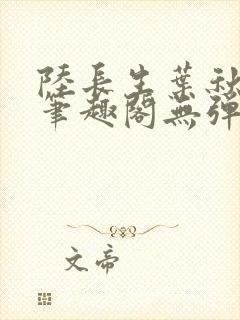 陸長生葉秋
筆趣閣無彈
文帝